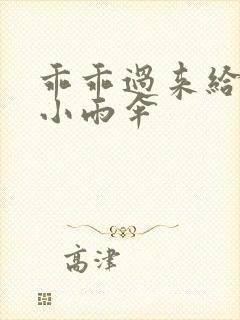 乖乖過来給
小雨傘
高津